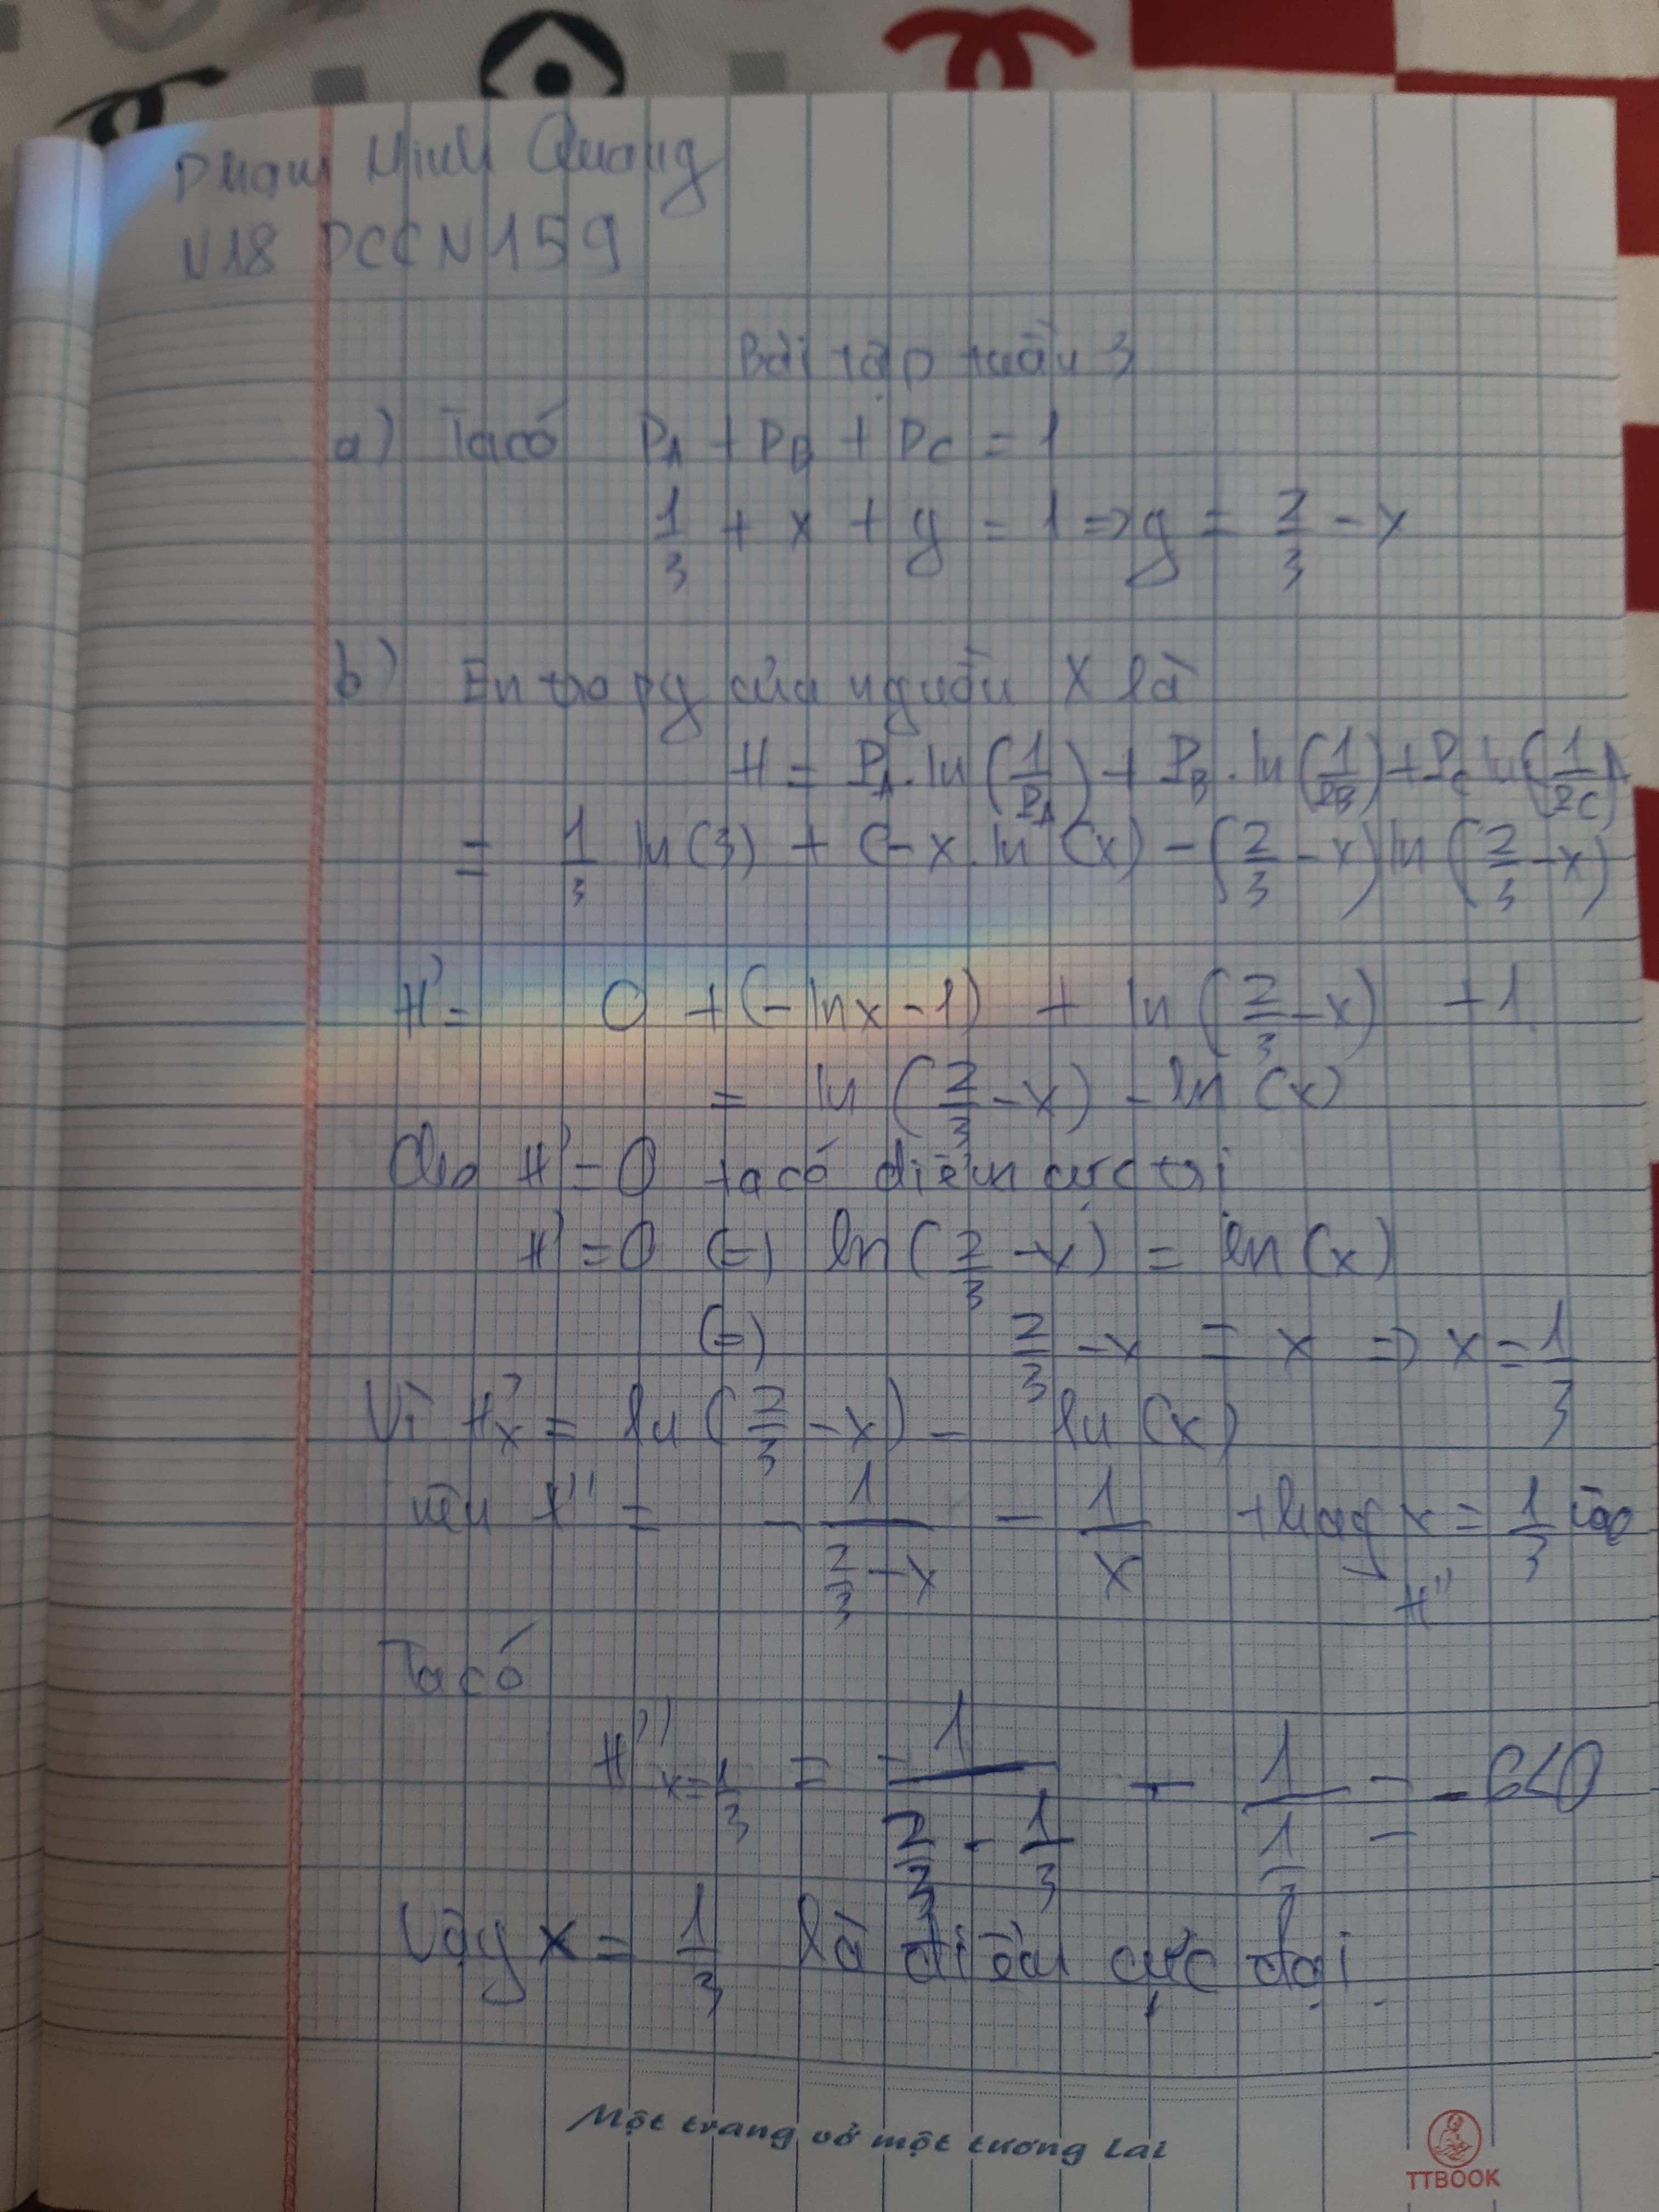 Phạm Minh Quang
N18 DCCN159
Bài tập tuần 3
a) Ta có P_A + P_B + P_C = 1
1/3 + x + y = 1 => y = 2/3 - x
b) Entropy của nguồn X là
H = P_A . ln(1/P_A) + P_B . ln(1/P_B) + P_C ln(1/P_C)
= 1/3 ln(3) + (-x. ln(x) - (2/3 - x) ln(2/3 - x)
H' = 0 + (-lnx - 1) + ln(2/3 - x) + 1
= ln(2/3 - x) - ln(x)
Cho H' = 0 ta có điểm cực trị
H' = 0 (=) ln(2/3 - x) = ln(x)
(=) 2/3 - x = x => x = 1/3
Vì H'_x = ln(2/3 - x) - ln(x)
nên H'' = - 1/(2/3 - x) - 1/x thay x = 1/3 vào
H''
Ta có
H''_{x=1/3} = -1/(2/3 - 1/3) - 1/(1/3) = -6<0
Vậy x = 1/3 là điểm cực đại.
Một trang vở một tương lai
TTBOOK